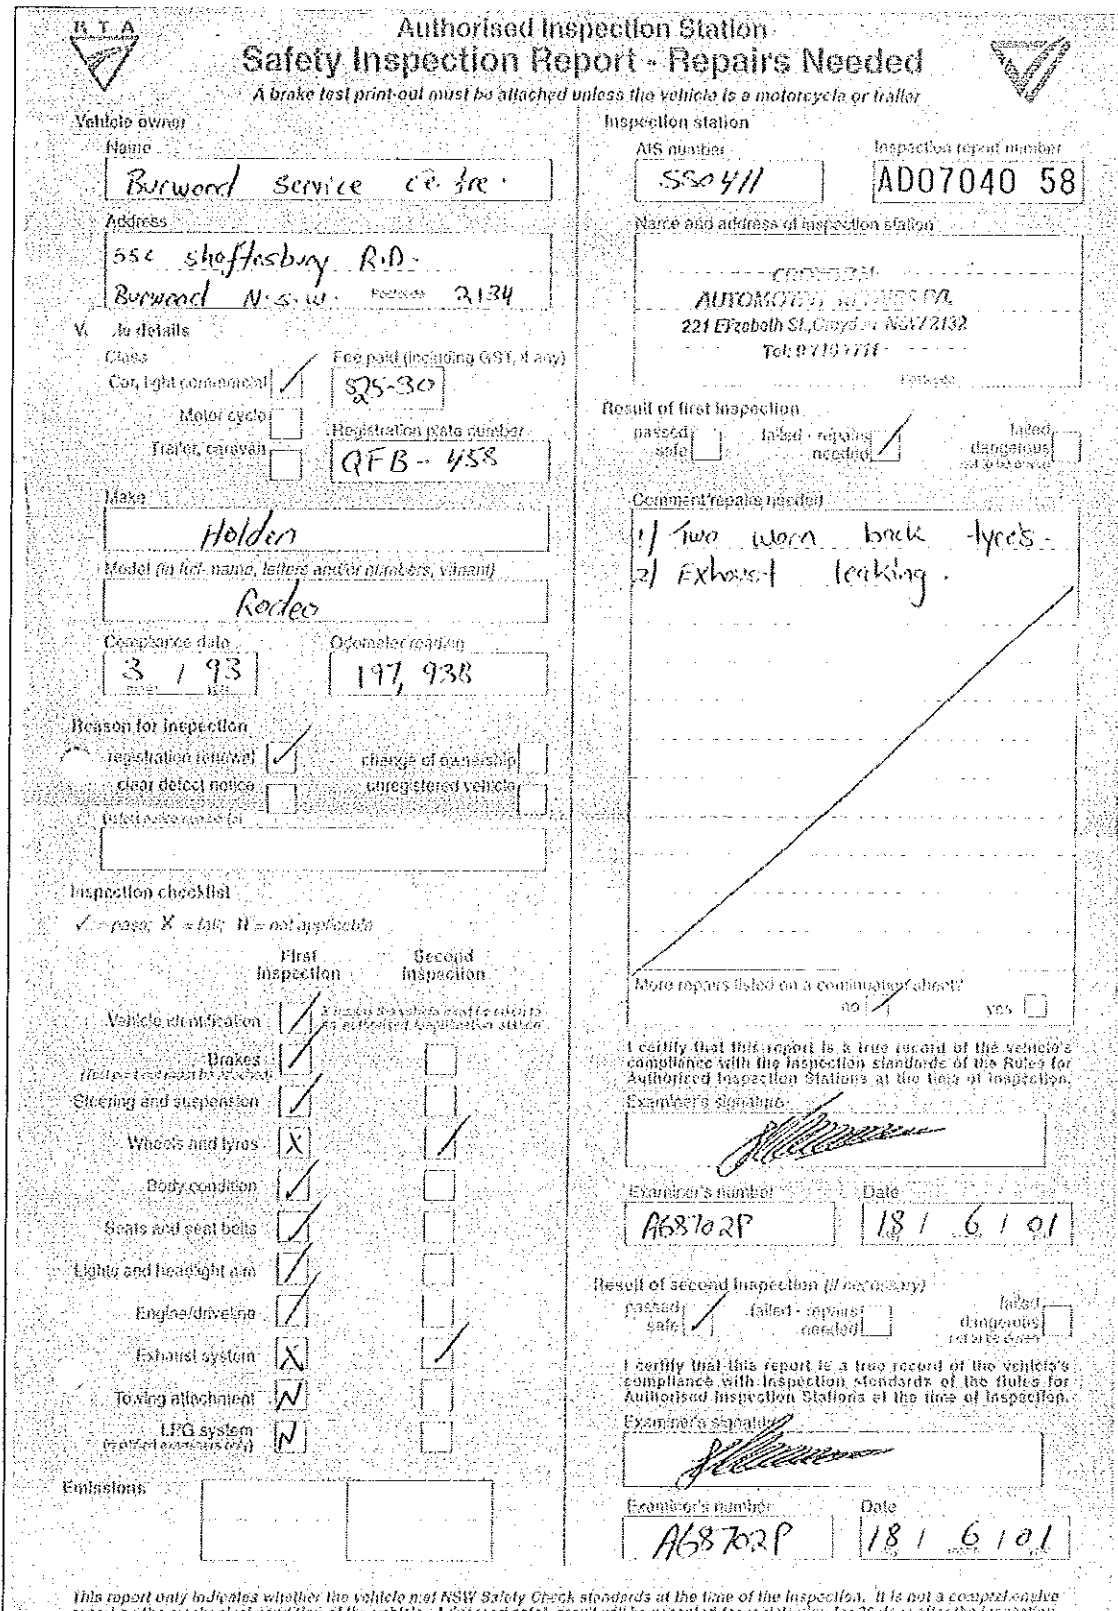 R T A
Authorised Inspection Station
Safety Inspection Report - Repairs Needed
A brake test print-out must be attached unless the vehicle is a motorcycle or trailer
Vehicle owner
Name
Burwood Service ce tre.
Address
55c shaftesbury R.D.
Burwood N.S.W. Postcode 2134
details
Class
Fee paid (including GST, if any)
Car, light commercial
$25-30
Motor cycle
Registration plate number
Trailer, caravan
QFB-458
Make
Holden
Model (in full- name, letters and/or numbers, variant)
Rodeo
Compliance date
Odometer reading
3 / 93
197,938
Reason for inspection
registration renewal
change of ownership
clear defect notice
unregistered vehicle
Inspection checklist
✓ = pass; X = fail; N = not applicable
First Inspection
Second Inspection
Vehicle identification
Brakes
Steering and suspension
Wheels and tyres X
Body condition
Seats and seat belts
Lights and headlight aim
Engine/driveline
Exhaust system X
Towing attachment N
LPG system N
Emissions
Inspection station
AIS number
Inspection report number
550411
AD07040 58
Name and address of inspection station
AUTOMOTIVE
221 Elizabeth St., Croydon NSW 2132
Tel:
Postcode
Result of first inspection
passed safe
failed - repairs needed
failed dangerous
Comment/repairs needed
1) Two worn back tyres.
2) Exhaust leaking.
More repairs listed on a continuation sheet?
no
yes
I certify that this report is a true record of the vehicle's
compliance with the inspection standards of the Rules for
Authorised Inspection Stations at the time of inspection.
Examiner's signature
Examiner's number
Date
A68702P
18 / 6 / 01
Result of second inspection (if necessary)
passed safe
failed - repairs needed
failed dangerous
I certify that this report is a true record of the vehicle's
compliance with inspection standards of the Rules for
Authorised Inspection Stations at the time of inspection.
Examiner's signature
Examiner's number
Date
A68702P
18 / 6 / 01
This report only indicates whether the vehicle met NSW Safety Check standards at the time of the inspection. It is not a comprehensive